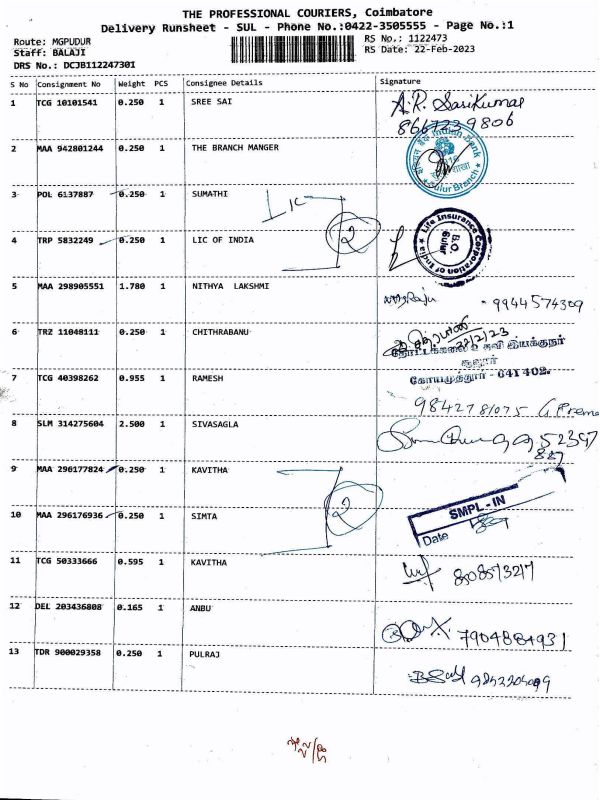 THE PROFESSIONAL COURIERS, Coimbatore
Delivery Runsheet - SUL - Phone No.:0422-3505555 - Page No.:1
Route: MGPUDUR
Staff: BALAJI
DRS No.: DCJB112247301
RS No.: 1122473
RS Date: 22-Feb-2023
S No Consignment No Weight PCS Consignee Details Signature
1 TCG 10101541 0.250 1 SREE SAI A.R. Sasikumar
8667239806
2 MAA 942801244 0.250 1 THE BRANCH MANGER
Indian Bank
Sulur Branch
3 POL 6137887 0.250 1 SUMATHI
LIC
2
4 TRP 5832249 0.250 1 LIC OF INDIA
Life Insurance Corporation of India
B.O.
Sulur
5 MAA 298905551 1.780 1 NITHYA LAKSHMI
9944574309
6 TRZ 11048111 0.250 1 CHITHRABANU
தோட்டக்கலை உதவி இயக்குநர்
சூலூர்
7 TCG 40398262 0.955 1 RAMESH
கோயமுத்தூர் - 641 402.
9842781075 G. Prema
8 SLM 314275604 2.500 1 SIVASAGLA
9 MAA 296177824 0.250 1 KAVITHA
2
10 MAA 296176936 0.250 1 SIMTA
SMPL - IN
Date
11 TCG 50333666 0.595 1 KAVITHA
12 DEL 203436808 0.165 1 ANBU
7904884931
13 TDR 900029358 0.250 1 PULRAJ